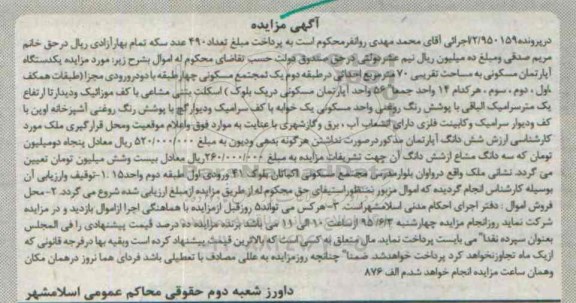 آگهی مزایده
درپرونده۷۲/۹۵۰۱۵۹اجرائی آقای محمد مهدی روانفرمحکوم است به پرداخت مبلغ تعداد۴۹۰ عدد سکه تمام بهارآزادی ریال درحق خانم
مریم صدقی ومبلغ ده میلیون ریال نیم عشردولتی درحق صندوق دولت حسب تقاضای محکوم له اموال بشرح زیر: مورد مزایده یکدستگاه
آپارتمان مسکونی به مساحت تقریبی ۷۰ مترمربع احداثی درطبقه دوم یک مجتمع مسکونی چهارطبقه با دودرورودی مجزا(طبقات همکف
،اول ، دوم ، سوم ، هرکدام ۱۴ واحد جمعا ۵۶ واحد آپارتمان مسکونی دریک بلوک ) اسکلت بتنی مشاعی با کف موزائیک ودیدارتا ارتفاع
یک مترسرامیک الباقی با پوشش رنگ روغنی واحد مسکونی یک خوابه با کف سرامیک ودیوارگچ با پوشش رنگ روغنی آشپزخانه اوپن با
کف ودیوار سرامیک وکابینت فلزی دارای انشعاب آب ، برق وگازشهری با عنایت به موارد فوق واعلام موقعیت ومحل قرارگیری ملک مورد
کارشناسی ارزش شش دانگ آپارتمان مذکوردرصورت نداشتن هرگونه بدهی ودیون به مبلغ ۵۲۰/۰۰۰/۰۰۰ ریال معادل پنجاه دومیلیون
تومان که سه دانگ مشاع ازشش دانگ آن جهت تشریفات مزایده به مبلغ ۲۶۰/۰۰۰/۰۰۰ریال معادل بیست وشش میلیون تومان تعیین
می گردد نشانی ملک واقع درواوان بلوارمدرس مجتمع مسکونی اکباتان بلوک ۴۱ ورودی اول طبقه دوم واحد۱۵ ۱-توقیف وارزیابی آن
بوسیله کارشناس انجام گردیده که اموال مزبور بمنظوراستیفای حق محکوم له ازطریق مزایده ازمبلغ ارزیابی شده شروع می گردد. ۲-محل
فروش اموال : دفتر اجرای احکام مدنی اسلامشهراست. ۳-هرکس می تواند۵ روزقبل ازمزایده با هماهنگی اجرا ازاموال بازدید و در مزایده
شرکت نماید روزانجام مزایده چهارشنبه ۹۵/۶/۳ ازساعت ۱۰ الی ۱۱ می باشد برنده مزایده ده درصد قیمت پیشنهادی را فی المجلس
بعنوان سپرده نقدا" می بایست پرداخت نماید. مال متعلق به کسی است که بالاترین قیمت پیشنهاد کرده است وبقیه بها درفرجه قانونی که
ازیک ماه تجاوزنخواهد کرد پرداخت خواهدشد. ضمنا" چنانچه روزمزایده به عللی مصادف با تعطیلی باشد فردای هما نروز درهمان مکان
وهمان ساعت مزایده انجام خواهد شد.م الف ۸۷۶
داورز شعبه دوم حقوقی محاکم عمومی اسلامشهر